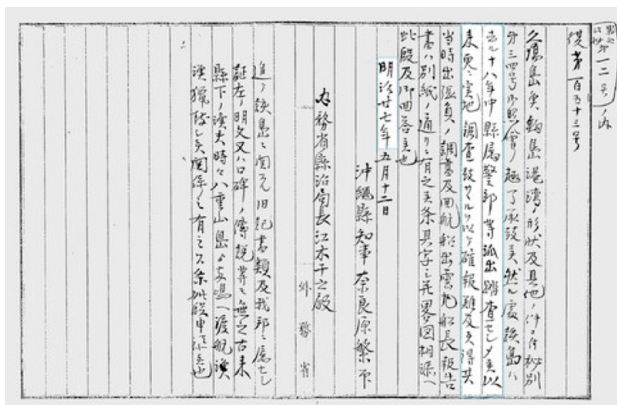 復第百五十三号
久場島魚釣島港湾ノ形状及其他ノ件ニ付秘別
第三四号御照会ノ趣了承致候然ル處該島ハ
去ル十八年中縣属警部等派出踏査セシメ候以
来更ニ実地調査致サヽルヲ以テ確報難及候得共
当時出張員ノ調書及回航船出雲丸船長報告
書ハ別紙ノ通リニ有之候条其写ニ并畧図相添ヘ
此段及御回答候也
明治廿七年五月十二日
沖縄縣知事奈良原繁
内務省縣治局長江木千之殿
外務省
追テ該島ニ関スル旧記書類及我邦ニ属セシ
証左ノ明文又ハ口碑ノ傳説等モ無之古来
縣下ノ漁夫時々八重山島ヨリ両島ヘ渡航漁
猟致シ候関係ノミ有之候条此段申添候也